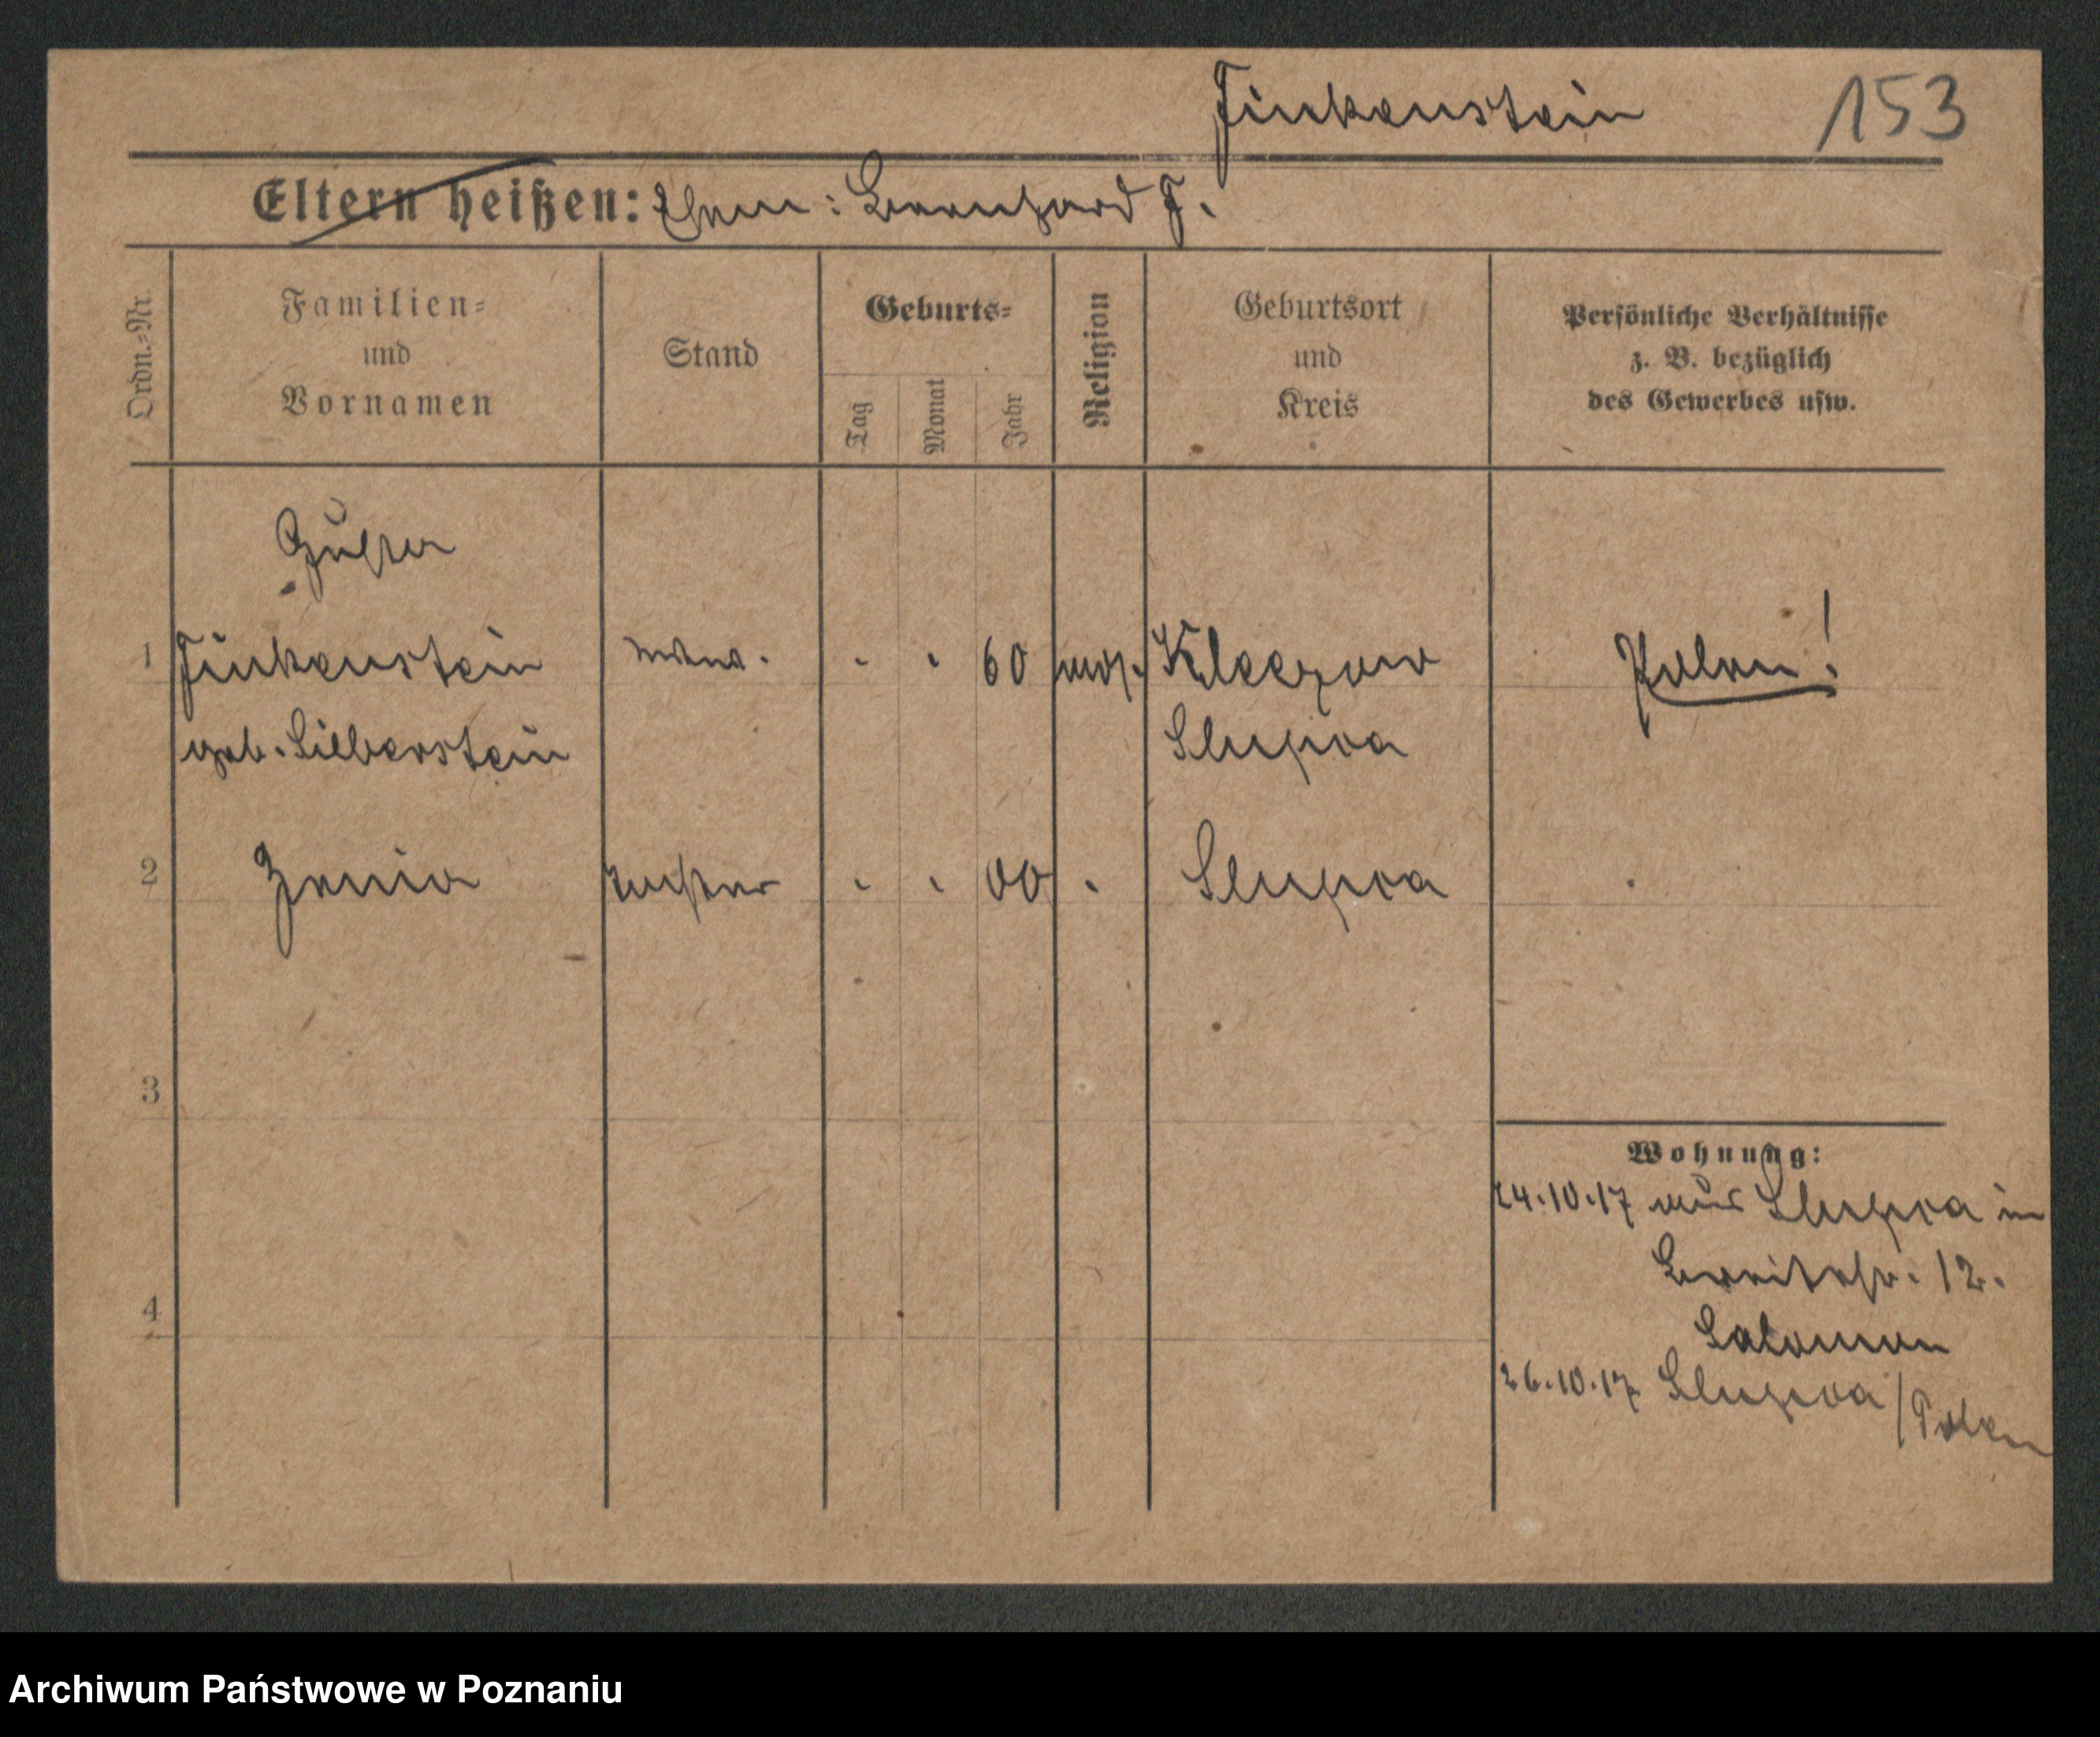 Finkenstein 153
Eltern heißen: Ehem: Bernhard F.
Ordn.=Nr.
Familien=
und
Vornamen
Stand
Geburts=
Tag
Monat
Jahr
Religion
Geburtsort
und
Kreis
Persönliche Verhältnisse
z. B. bezüglich
des Gewerbes usw.
1 Finkenstein . . 60 mos. Kleczew Polen!
geb. Silberstein Slupca
2 Zenia Tochter . . 00 . Slupca .
3
4
Wohnung:
24.10.17 aus Slupca in
Breitestr. 12.
Salomon
26.10.17 Slupca / Polen
Archiwum Państwowe w Poznaniu